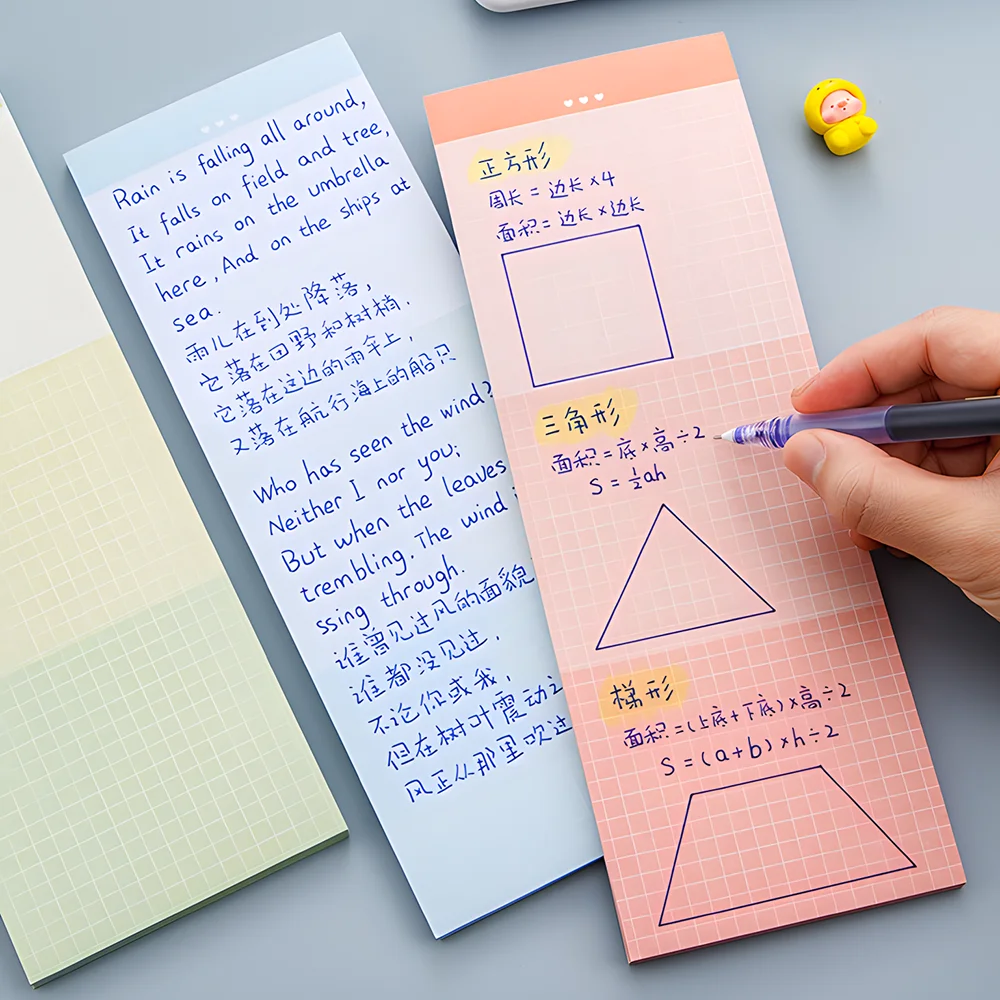 Rain is falling all around,
It falls on field and tree,
It rains on the umbrella
here, And on the ships at
sea.
雨儿在到处降落,
它落在田野和树梢.
它落在这边的雨伞上,
又落在航行海上的船只
Who has seen the wind?
Neither I nor you;
But when the leaves
trembling. The wind
ssing through.
谁曾见过风的面貌
谁都没见过.
不论你或我,
但在树叶震动之
风正从那里吹过
正方形
周长 = 边长×4
面积 = 边长×边长
三角形
面积=底×高÷2
S = ½ah
梯形
面积=(上底+下底)×高÷2
S=(a+b)×h÷2